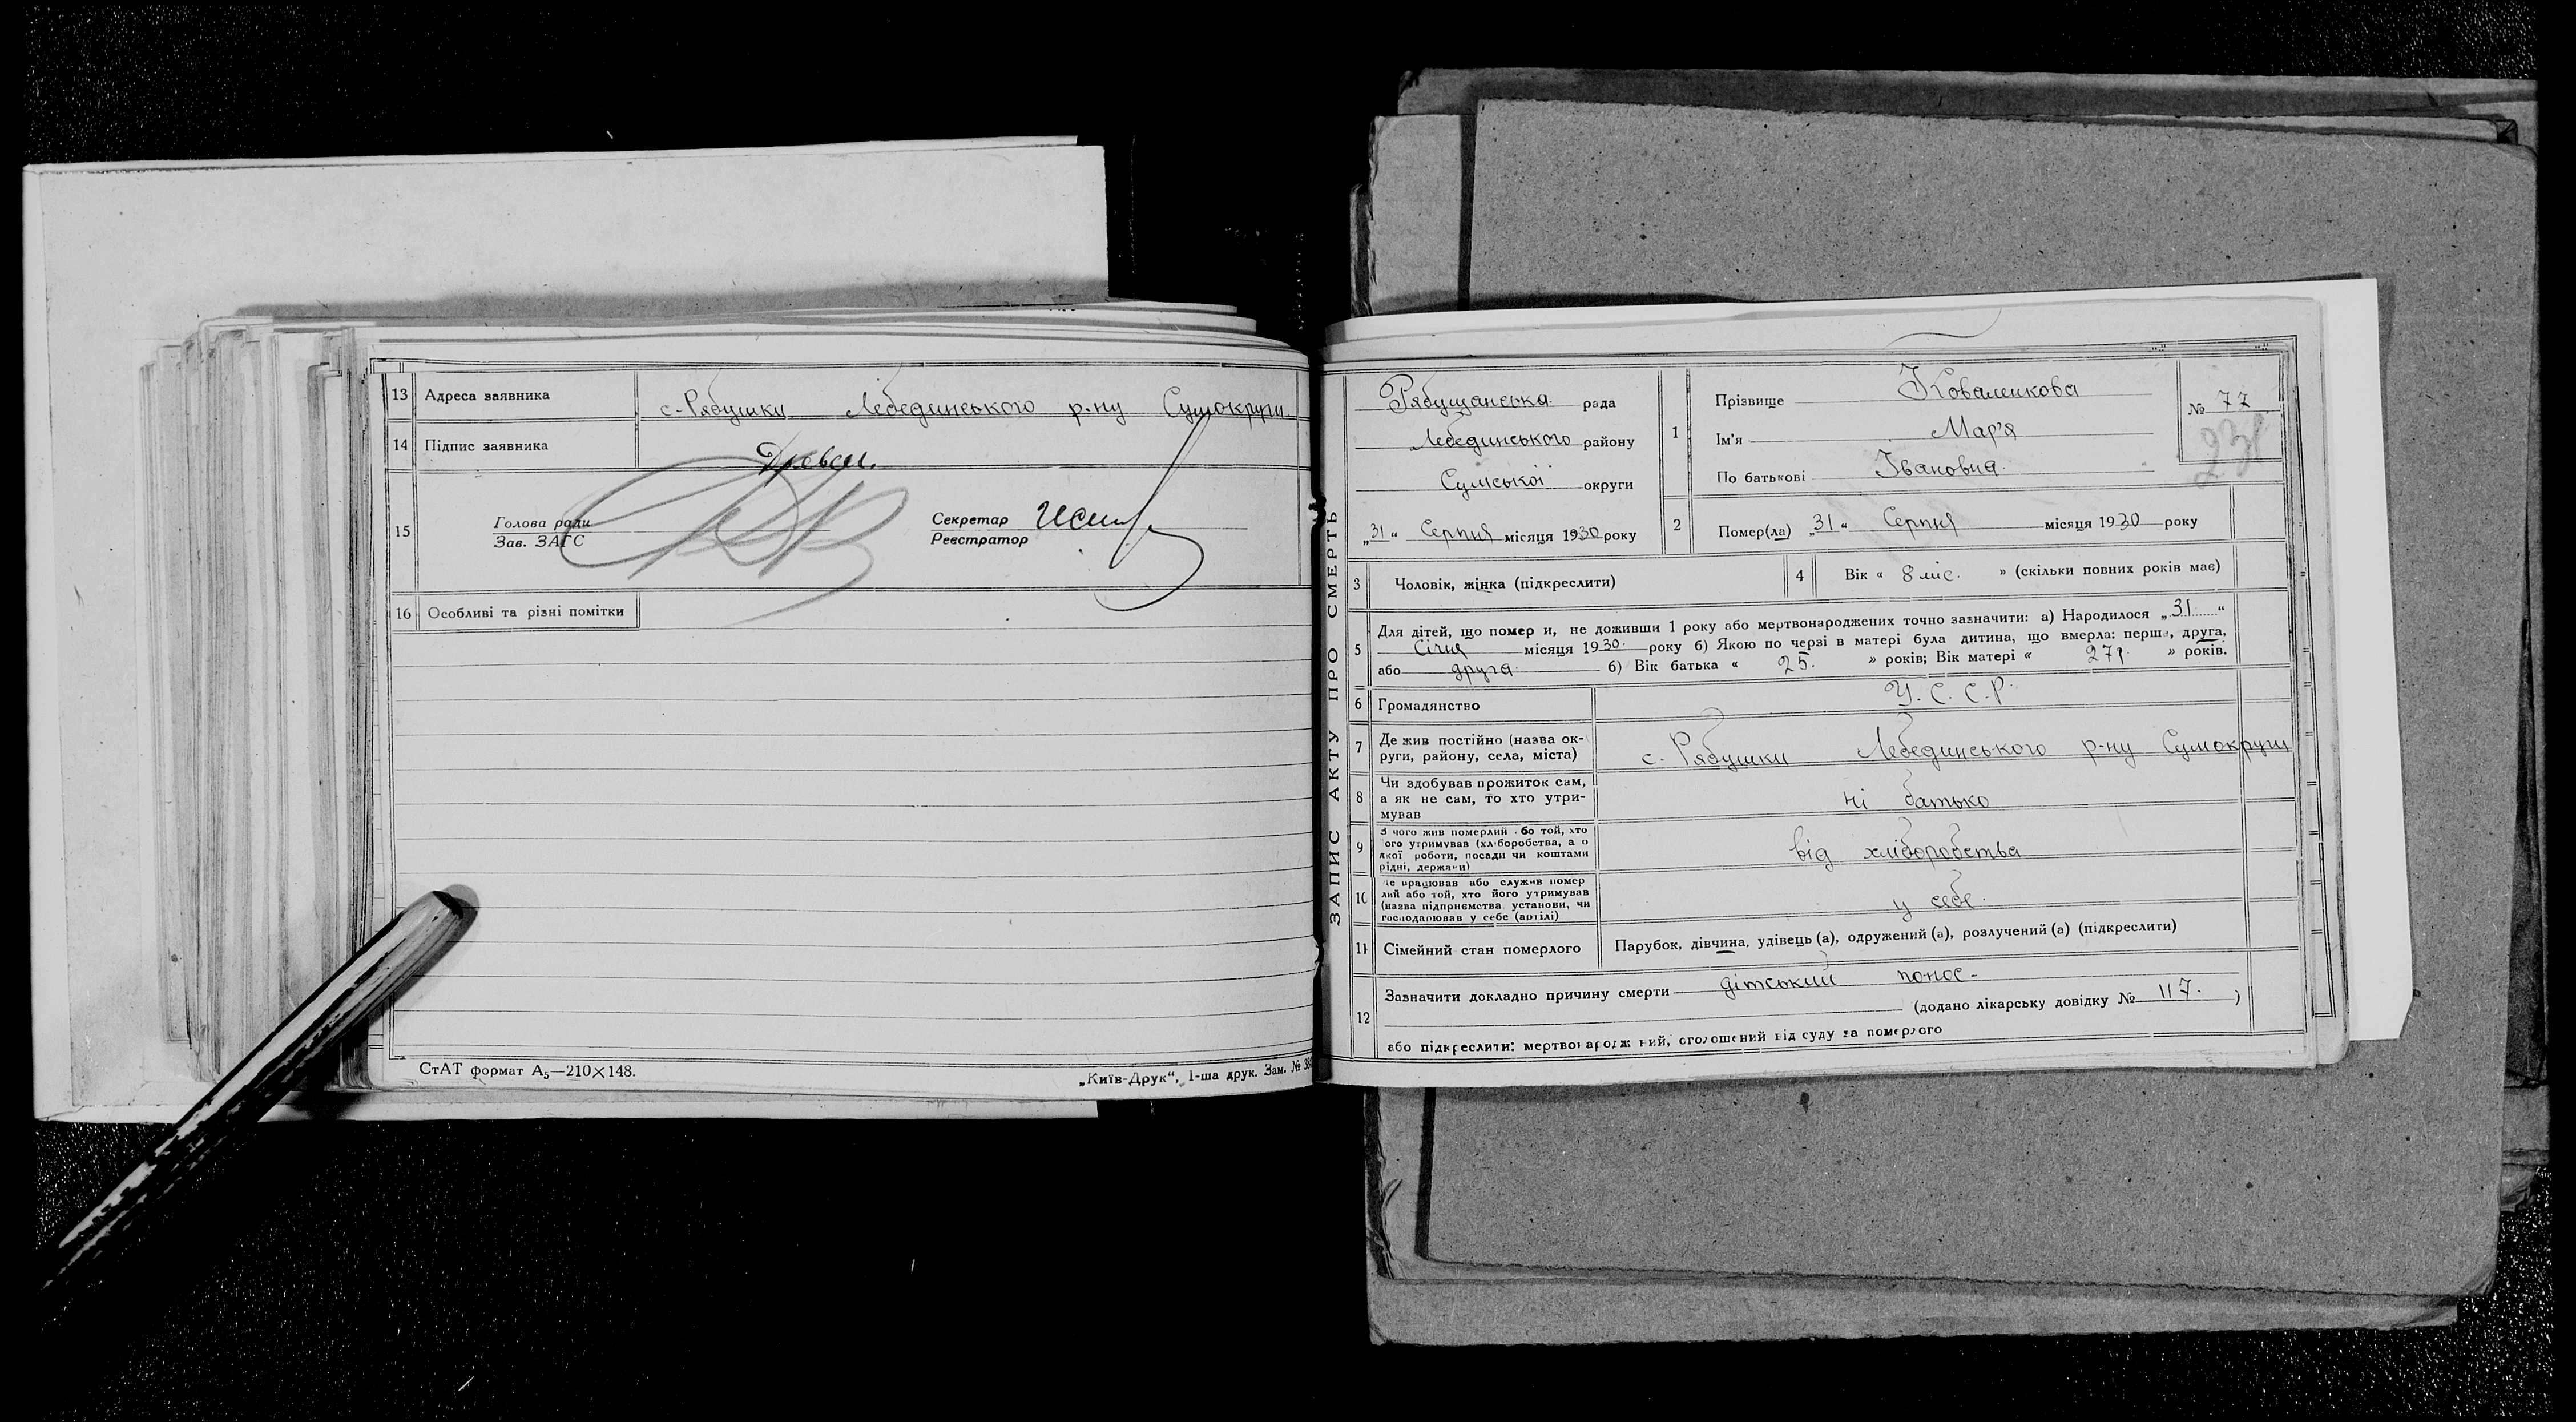 13 Адреса заявника с. Рябушки Лебединського р-ну Сумокруги
14 Підпис заявника
15 Голова ради
Зав. ЗАГС
Секретар
Реєстратор
16 Особливі та різні помітки
СтАТ формат А₅—210×148.
„Київ-Друк“, 1-ша друк. Зам. №
ЗАПИС АКТУ ПРО СМЕРТЬ
Рябушанська рада
Лебединського району
Сумської округи
„31“ Серпня місяця 1930 року
1 Прізвище Коваленкова
Ім'я Мар'я
По батькові Івановна
№ 77
238
2 Помер(ла) „31“ Серпня місяця 1930 року
3 Чоловік, жінка (підкреслити)
4 Вік « 8 міс. » (скільки повних років має)
5 Для дітей, що помер и, не доживши 1 року або мертвонароджених точно зазначити: а) Народилося „31“
Січня місяця 1930 року б) Якою по черзі в матері була дитина, що вмерла: перша, друга,
або друга б) Вік батька « 25 » років; Вік матері « 27р » років.
6 Громадянство У.С.С.Р.
7 Де жив постійно (назва ок-
руги, району, села, міста) с. Рябушки Лебединського р-ну Сумокруги
8 Чи здобував прожиток сам,
а як не сам, то хто утри-
мував ні батько
9 З чого жив померлий або той, хто
його утримував (хліборобства, а о
якої роботи, посади чи коштами
рідні, держави) від хліборобства
10 Де працював або служив помер
лий або той, хто його утримував
(назва підприємства установи, чи
господарював у себе (артілі) у себе
11 Сімейний стан померлого Парубок, дівчина, удівець (а), одружений (а), розлучений (а) (підкреслити)
12 Зазначити докладно причину смерти дітський понос
(додано лікарську довідку № 117.)
або підкреслити: мертвонароджений, оголошений від суду за померлого